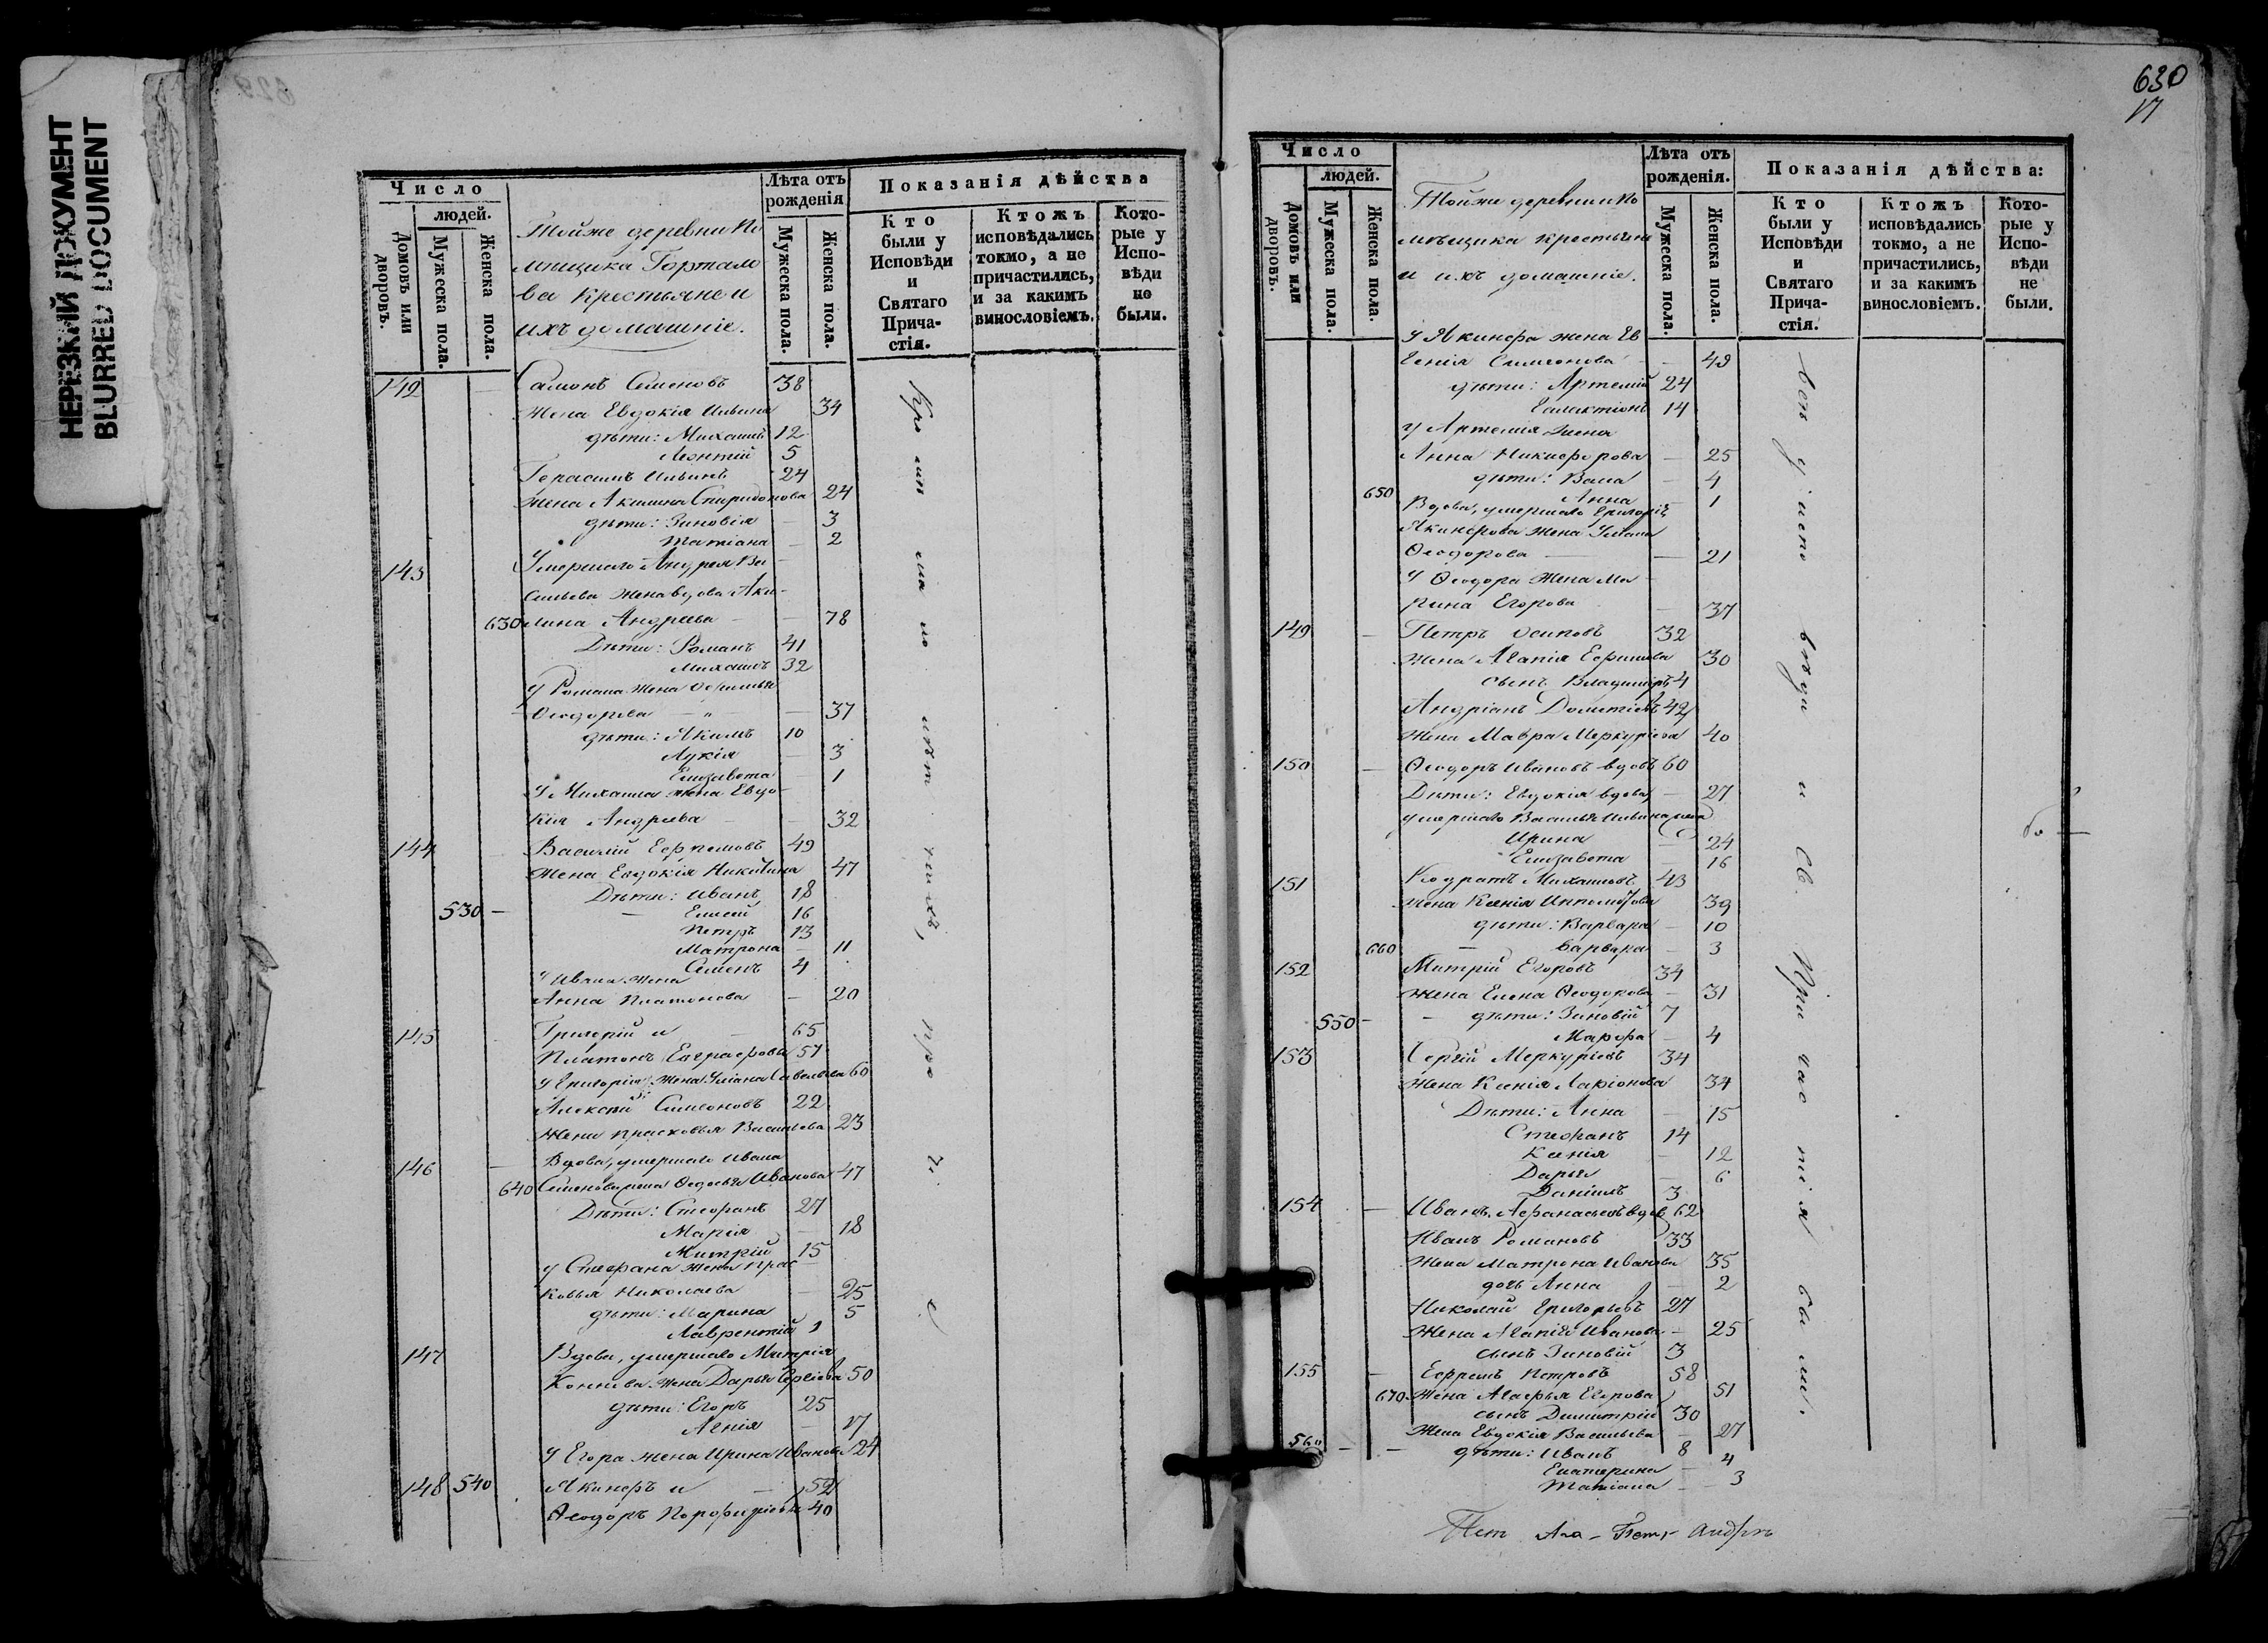 НЕРЕЗКИЙ ДОКУМЕНТ
BLURRED DOCUMENT
Число
людей.
Домовъ или дворовъ.
Мужеска пола.
Женска пола.
Тойже деревни По
мѣщика
ва крестьяне и
ихъ домашніе.
Лѣта отъ рожденія
Мужеска пола.
Женска пола.
Показанія дѣйства
Кто были у Исповѣди и Святаго Причастія.
Ктожъ исповѣдались токмо, а не причастились, и за какимъ винословіемъ.
Которые у Исповѣди не были.
142 Самонъ Семеновъ 38
Жена Евдокія Ильина 34
дѣти: Михаилъ 12
Леонтій 5
Герасимъ Ильинъ 24
Жена Акилина Спиридонова 24
дѣти: Зиновія 3
Татіана 2
143 Умершаго Андрея Ва
сильева жена вдова Аки-
630 лина Андреева 78
Дѣти: Романъ 41
Михаилъ 32
у Романа жена
Ѳеодорова 37
дѣти: Акимъ 10
Лукія 3
Елизавета 1
У Михаила жена Евдо-
кія Андреева 32
144 Василій 49
Жена Евдокія Никитина 47
Дѣти: Иванъ 18
530 Елисей 16
Петръ 13
Матрона 11
Семенъ 4
у Ивана жена
Анна Платонова 20
145 Григорій и 65
Платонъ Евграфовы 57
у Григорія жена Уліана Савельева 60
Алексѣй Симеоновъ 22
Жена Прасковья Васильева 23
146 Вдова, умершаго Ивана
640 Семенова жена Ѳедосья Иванова 47
Дѣти: Стефанъ 27
Марія 18
Митрій 15
у Стефана жена Прас
ковья Николаева 25
дѣти: Марина 5
Лаврентій 1
147 Вдова, умершаго Митрія
жена Дарья Сергіева 50
дѣти: Егоръ 25
Агнія 17
у Егора жена Ирина Иванова 24
148 540 Акинфъ и 52
Ѳеодоръ Порофиріевы 40
630
17
Число
людей.
Домовъ или дворовъ.
Мужеска пола.
Женска пола.
Тойже деревни и По
мѣщика крестьяне
и ихъ домашніе.
Лѣта отъ рожденія.
Мужеска пола.
Женска пола.
Показанія дѣйства:
Кто были у Исповѣди и Святаго Причастія.
Ктожъ исповѣдались токмо, а не причастились, и за какимъ винословіемъ.
Которые у Исповѣди не были.
У Акинфа жена Ев
генія Симеонова 49
дѣти: Артемій 24
Галактіонъ 14
у Артемія жена
Анна Никифорова 25
дѣти: 4
650 Анна 1
Вдова, умершаго Григорія
Акинфова жена Уліана
Ѳеодорова 21
У Ѳеодора жена Ма
рина Егорова 37
149 Петръ Осиповъ 32
Жена Агапія Ефимова 30
сынъ Владиміръ 4
Андріанъ Дометіевъ 42
Жена Мавра Меркуріева 40
150 Ѳеодоръ Ивановъ вдовъ 60
Дѣти: Евдокія вдова, 27
умершаго Василья Ильина жена
Ирина 24
Елизавета 16
151 Кодратъ Михаиловъ 43
Жена Ксенія Ипполитова 39
дѣти: Варвара 10
660 Варвара 3
152 Митрій Егоровъ 34
Жена Елена Ѳеодорова 31
550 дѣти: Зиновій 7
Марфа 4
153 Сергій Меркуріевъ 34
Жена Ксенія Ларіонова 34
Дѣти: Анна 15
Стефанъ 14
Ксенія 12
Дарья 6
Даніилъ 3
154 Иванъ Афанасьевъ вдов 62
Иванъ Романовъ 33
Жена Матрона Иванова 35
дочь Анна 2
Николай Григорьевъ 27
Жена Агапія Иванова 25
сынъ Зиновій 3
155 Ефремъ Петровъ 58
670 Жена Агафья Егорова 51
сынъ Димитрій 30
Жена Евдокія Васильева 27
560 дѣти: Иванъ 8
Екатерина 4
Татіана 3
всѣ у исповѣди и Св. Причастія были.